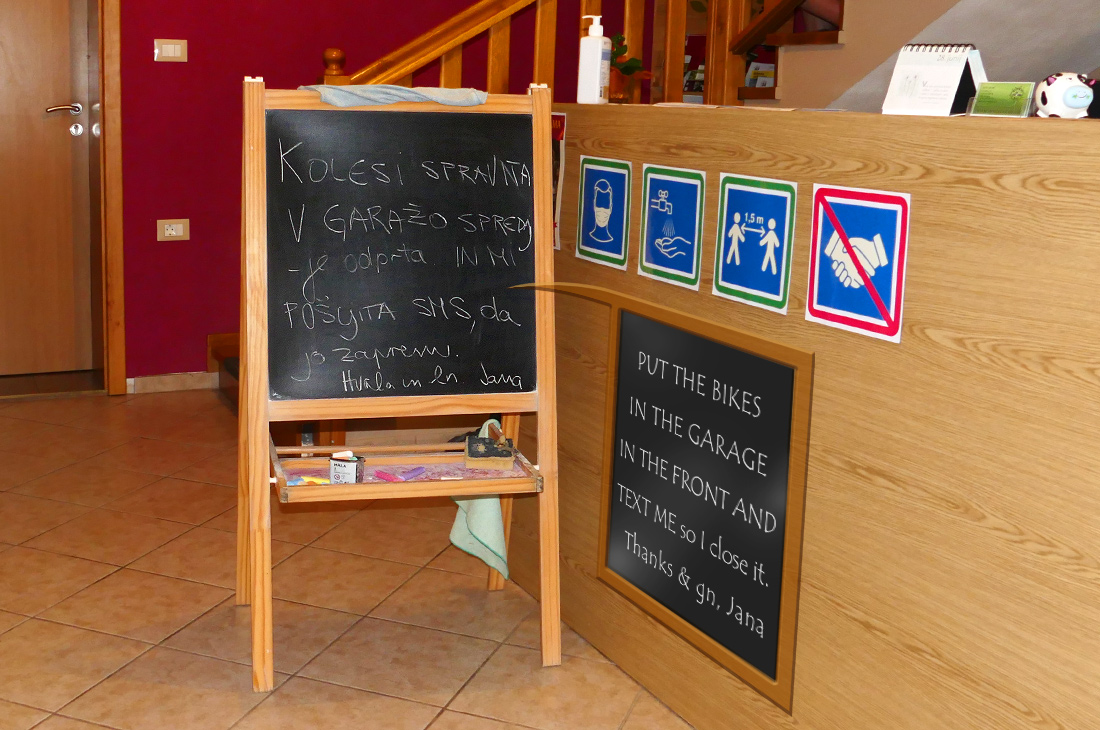 KOLESI SPRAVITA
V GARAŽO SPREDAJ
-je odprta IN MI
POŠLJITA SMS, da
jo zaprem.
Hvala in ln Jana
1,5 m
PUT THE BIKES
IN THE GARAGE
IN THE FRONT AND
TEXT ME so I close it.
Thanks & gn, Jana